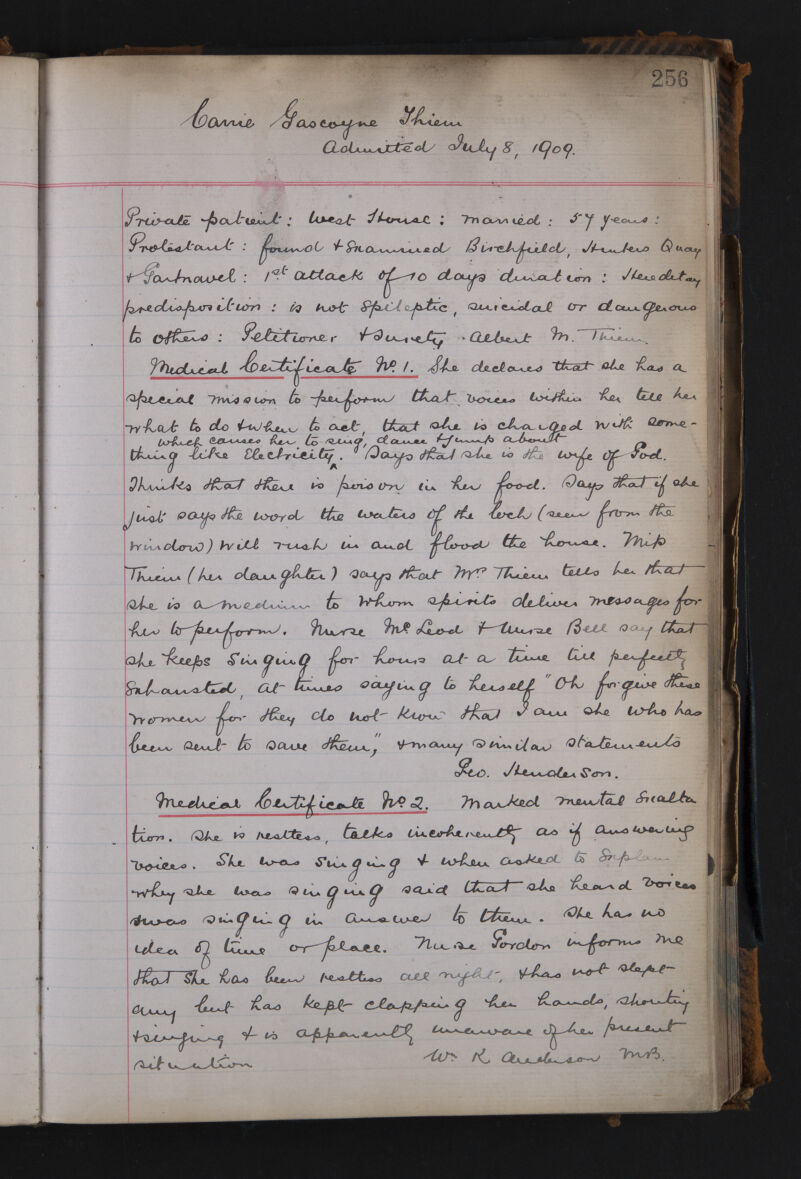 256
Carrie Gascoyne Thiem
Admitted July 8, 1909.
Private patient : West House : married : 57 years :
Protestant : found & Examined Birchfield, Hunters Quay
& Gartnavel : 1st attack of 10 days duration : Hereditary
predisposition : is not Epileptic, suicidal or dangerous
to others : Petitioner & Surety . Albert M. Thiem.
Medical Certificate No 1. She declares that she has a
special mission to perform that voices within her tell her
what to do & when to act, that she is charged with some-
which causes her to sing, dance & jump about
thing like Electricity ^. Says that she is the wife of God.
Thinks that there is poison in her food. Says that if she
just says the word the waters of the loch (seen from the
window) will rush in and flood the house. Miss
Thiem (her daughter) says that Mrs Thiem tells her that
she is a medium to whom spirits deliver messages for
her to perform. Nurse McLeod & Nurse Bell say that
she keeps Singing for hours at a time till perfectly
Exhausted, at times saying to herself "Oh forgive these
women for they do not know that I am she who has
been sent to save them," & many similar statements
Geo. Henderson.
Medical Certificate No 2. Marked mental Exalta
tion. She is restless, talks incoherently as if answering
voices. She was Singing & when asked to Explain
why she was singing said that she heard voices
& was singing in answer to them. She has no
idea of time or place. Nurse Gordon informs me
that She has been restless all night, & has not slept
any but has kept clapping her hands, shouting
& singing & is apparently unaware of her present
situation Wm K Anderson M.B.